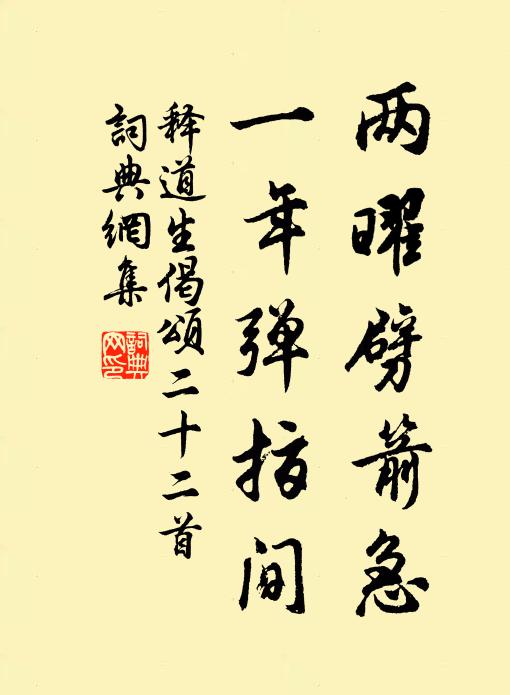 两曜劈箭急
一年弹指间
释道生偈颂二十二首
词典網集
詞典網印